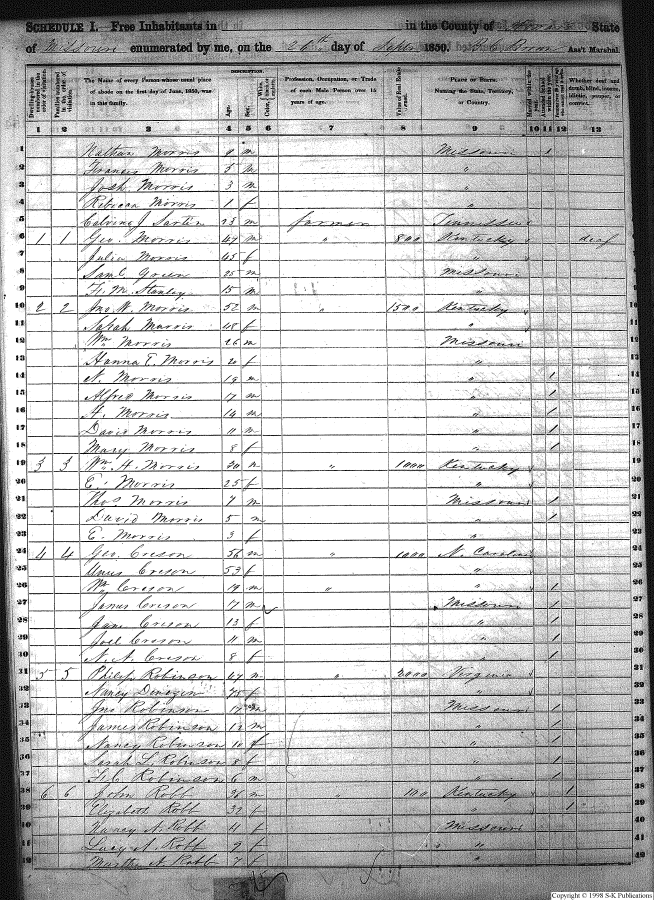 SCHEDULE I. Free Inhabitants in in the County of State
of Missouri enumerated by me, on the 26th day of Sept 1850. Ass't Marshal.
DESCRIPTION.
Dwelling-houses numbered in the order of visitation.
Families numbered in the order of visitation.
The Name of every Person whose usual place of abode on the first day of June, 1850, was in this family.
Age.
Sex.
White, black, or mulatto.
Profession, Occupation, or Trade of each Male Person over 15 years of age.
Value of Real Estate owned.
PLACE OF BIRTH. Naming the State, Territory, or Country.
Married within the year.
Whether deaf and dumb, blind, insane, idiotic, pauper, or convict.
1 2 3 4 5 6 7 8 9 10 11 12 13
1 Nathan Morris 9 m Missouri 1
2 Frances Morris 5 m "
3 Josh Morris 3 m "
4 Rebecca Morris 1 f "
5 Calvin J 23 m farmer Tennessee
6 1 1 Geo. Morris 47 m " 800 Kentucky deaf
7 Julia Morris 45 f "
8 Saml Green 25 m Missouri
9 F. M. Stanley 15 m
10 2 2 Jno W. Morris 52 m " 1500 Kentucky
11 Sarah Morris 48 f "
12 Wm Morris 26 m Missouri
13 Hanna E. Morris 20 f "
14 N. Morris 19 m " 1
15 Alfred Morris 17 m " 1
16 A. Morris 14 m " 1
17 David Morris 11 m " 1
18 Mary Morris 8 f " 1
19 3 3 Wm A. Morris 30 m " 1000 Kentucky
20 E. Morris 25 f "
21 Thos Morris 7 m Missouri 1
22 David Morris 5 m " 1
23 E. Morris 3 f "
24 4 4 Geo. Creson 56 m " 1000 N. Carolina
25 Creson 53 f "
26 Wm Creson 19 m " " 1
27 James Creson 17 m Missouri 1
28 Jane Creson 13 f " 1
29 Joel Creson 11 m " 1
30 N. A. Creson 8 f " 1
31 5 5 Philip Robinson 47 m " 2000 Virginia
32 Nancy 75 f "
33 Jno Robinson 17 m Missouri 1
34 James Robinson 12 m " 1
35 Nancy Robinson 10 f " 1
36 Sarah L. Robinson 8 f " 1
37 F. C. Robinson 6 m " 1
38 6 6 John Robb 36 m " 100 Kentucky 1
39 Elizabeth Robb 32 f " 1
40 Nancy A. Robb 11 f Missouri
41 Lucy A. Robb 9 f "
42 Martha A. Robb 7 f "
Copyright © 1998 S-K Publications